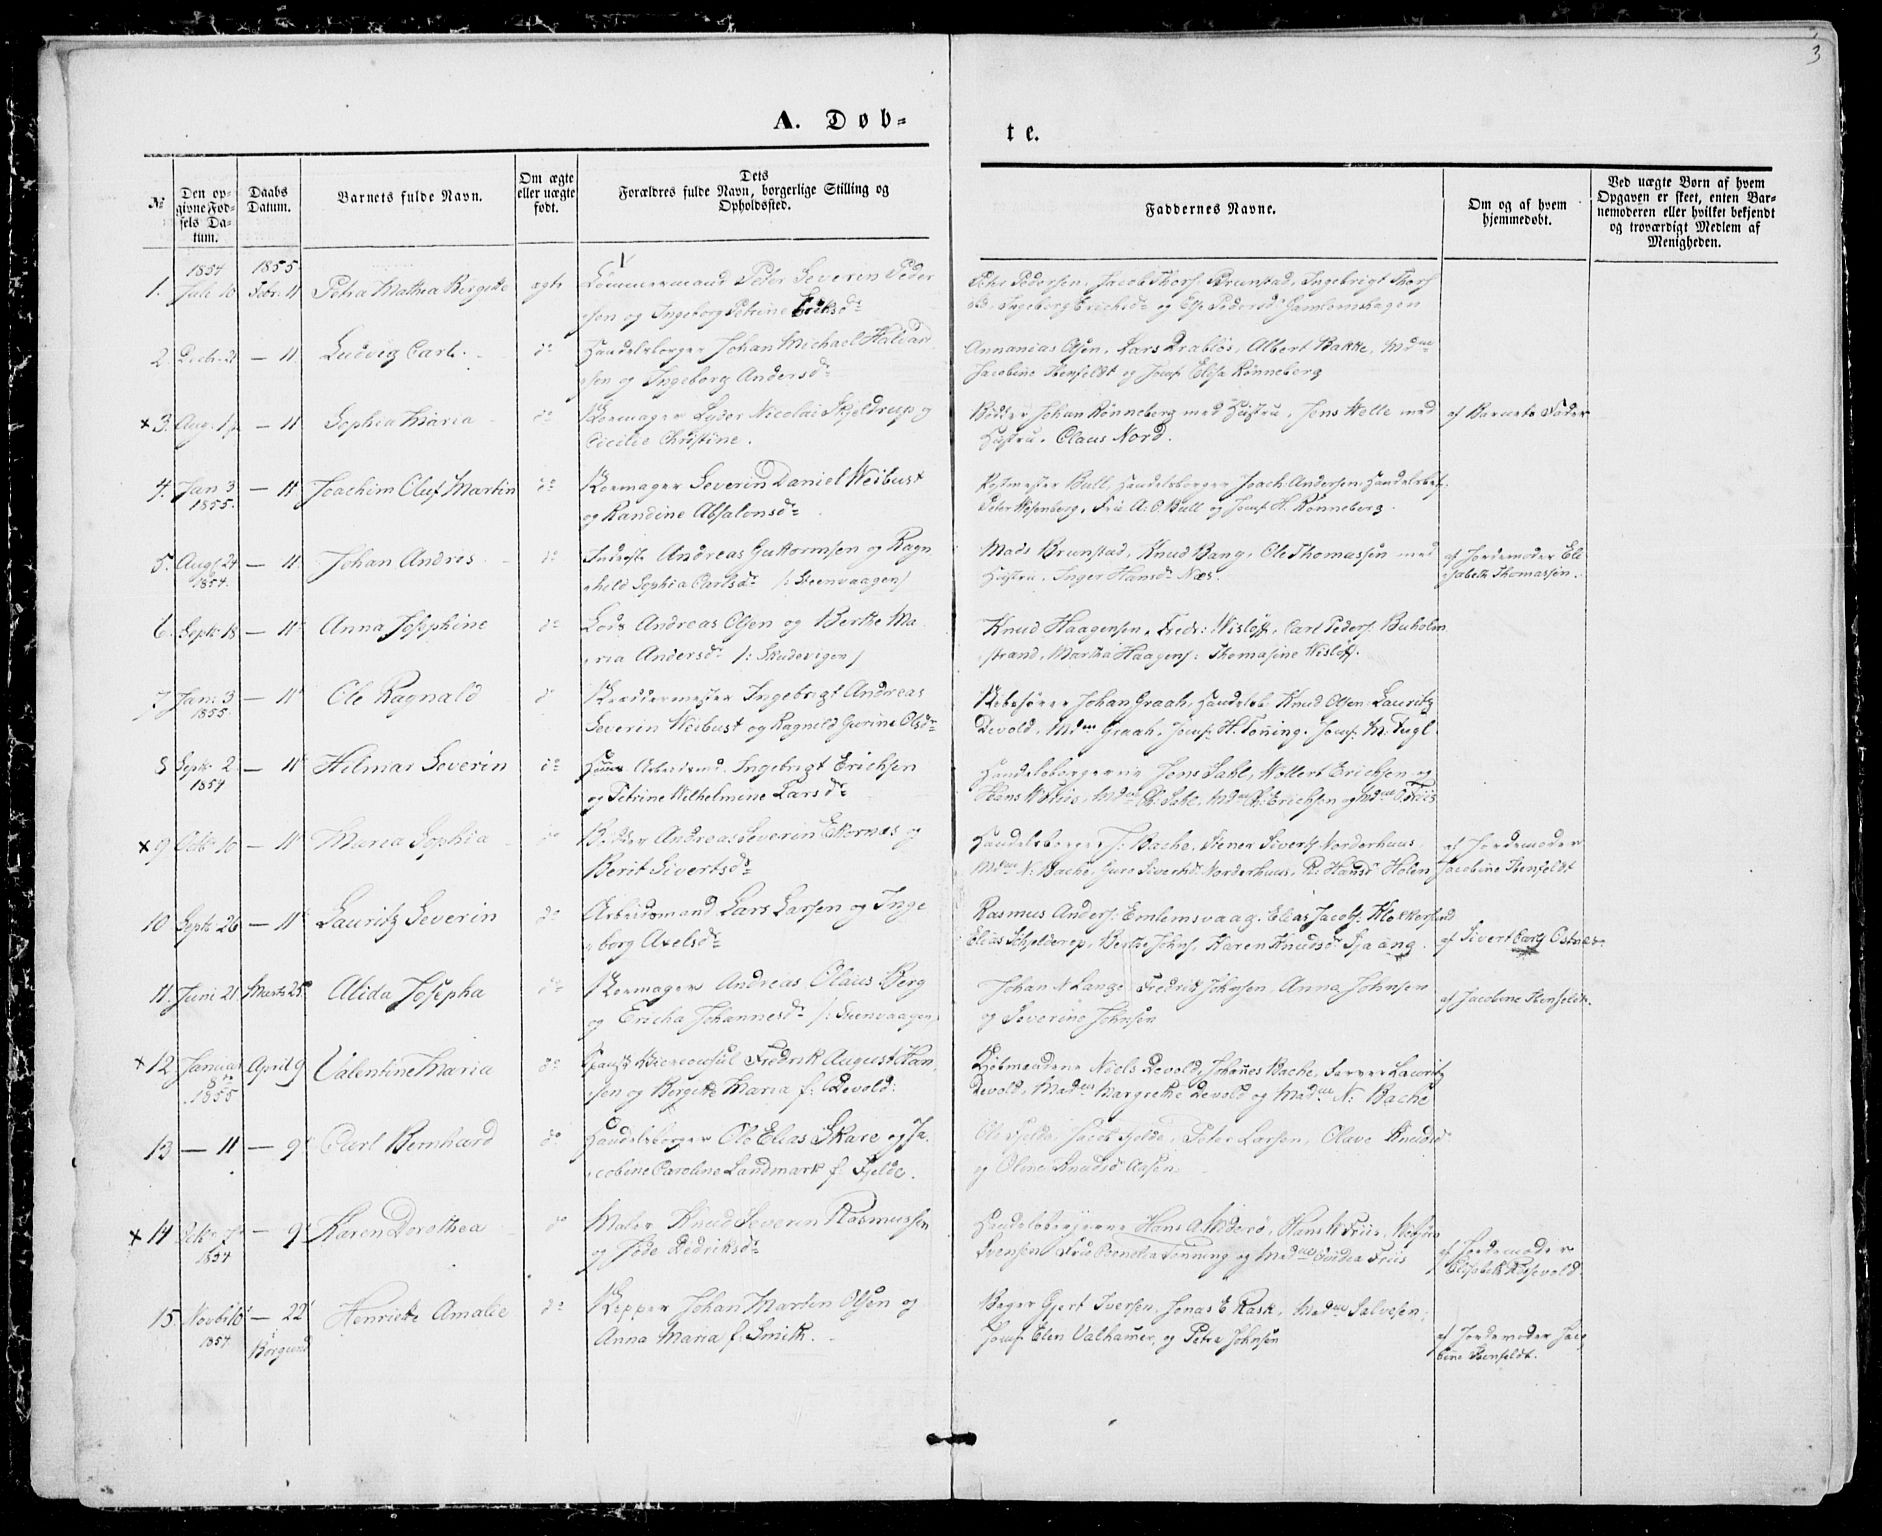 3
A. Døb-
te.
№
Den op-
givne Fød-
sels Da-
tum.
Daabs
Datum.
Barnets fulde Navn.
Om ægte
eller uægte
født.
Dets
Forældres fulde Navn, borgerlige Stilling og
Opholdssted.
Faddernes Navne.
Om og af hvem
hjemmedøbt.
Ved uægte Børn af hvem
Opgaven er skeet, enten Bar-
nemoderen eller hvilket bekjendt
og troværdigt Medlem af
Menigheden.
1854 1855
1. Juli 10 Febr. 11 Petra Mathea Bergitte ægte Tømmermand Peter Severin Peder
sen og Ingeborg Petrine Eriksdr
Peter Pedersen, Jacob Thors. Brunstad, Ingebrigt Thors
Ingeborg Erichsdr og Else Pedersdr
2 Decbr. 21 — 11 Ludvig Carl. do Handelsborger Johan Michael Haldor
sen og Ingeborg Andersdr
Annanias Olsen, Lars Drabløs, Albert Bakke, Mdme
Jacobine Stenfeldt og Jomf. Elisa Rønneberg
x 3. Aug. — 11 Sophia Maria do Skomager Lyder Nicolai Skjeldrup og
Cecilie Christine.
Bødker Johan Rønneberg med Hustru, Jens Welle med
Hustru, Claus Nord.
af Barnets Fader
4. Jan. 3 — 11 Joachim Oluf Martin do Skomager Severin Daniel Weibust
1855. og Randine Absalonsdr
Postmester Bull, Handelsborger Joach. Andersen, Handelsbet.
Peter Wesenberg, Fru A. O. Bull og Jomf. H. Rønneberg.
5. Aug. 24 — 11 Johan Andreas do Inderste Andreas Guttormsen og Ragn
1854. hild Sophia Carlsdr /: Steenvaagen /
Mads Brunstad, Knud Bang, Ole Thomassen med
Hustru, Inger Hansdr Næs.
af Jordemoder Eli
sabeth Thomassen.
6. Septr 18 — 11 Anna Josephine do Lods Andreas Olsen og Berthe Ma
ria Andersdr /: Skudevigen /
Knud Haagensen, Fredr: Wisløff, Carl Peders. Buholm
strand, Martha Haagens: Thomasine Wisløff.
7. Jan: 3 — 11 Ole Ragnald do Skræddermester Ingebrigt Andreas
1855. Severin Weibust og Ragnild Gurine Olsdr
Johan Graah, Handelsb. Knud Olsen, Lauritz
Devold, Mdme Graah, Jomf. H. Tønning, Jomf. M. Fugl
8 Septr 2 — 11 Hilmar Severin do Arbeidsmd. Ingebrigt Erichsen
1854 og Petrine Wilhelmine Larsdr
Handelsborgerne Jens Dahl, Wollert Erichsen og
Hans W Friis, Mdme Dahl, Mdme Erichsen og Mdme Friis
x 9 Octbr 10 — 11 Maria Sophia do Bødker Andreas Severin Ekornæs og
Berit Sivertsdr
Handelsborger J: Bache, Stener Sivertz Norderhuus,
Mdme N: Bache, Guro Sivertsdr Norderhuus, R: Hansdr Holen
af Jordemoder
Jacobine Stenfeldt
10 Septr 26 — 11 Lauritz Severin do Arbeidsmand Lars Larsen og Inge
borg Axelsdr
Rasmus Anders: Emlemsvaag, Elias Jacobs:
Elias Schjelderup, Berthe Johns, Karen Knudsdr
af Sivert
11. Juni 21. Marts 25 Alida Josepha do Skomager Andreas Olaus Berg
og Ericha Johannesdr /: Steenvaagen /
Johan N Lange, Fredrik Johnsen, Anna Johnsen
og Severine Johnsen
af Jacobine Stenfeldt.
x 12. Januar April 9 Valentine Maria do Viceconsul Fredrik August Han
8de sen og Bergitte Maria f. Devold.
1855
Kjøbmændene Niels Devold, Johanes Bache, Farver Lauritz
Devold, Madme Margrethe Devold og Madme N: Bache
13 — 11 — 9 Carl Bernhard do Handelsborger Ole Elias Skare og Ja
cobine Caroline Landmark f. Fjelde.
Ole Fjelde, Jacob Fjelde, Peter Larsen, Olave Knudsd
og Oline Knudsdr Aasen.
x 14 — 9 Karen Dorothea do Maler Knud Severin Rasmussen
1854 og Didriksdr
Handelsborgerne Hans A. Hans W Friis,
Svensen Fru Tønning og Madme Friis
af Jordemoder
Elisabeth
15. Novbr 16 — 22 Henriette Amalie do Skipper Johan Martin Olsen og
1854 i Anna Maria f. Smith.
Borgund
Bager Gjert Iversen, Jonas E Rask, Madme Salvesen,
Jomf. Elen Valhamer, og Petra Johnsen
af Jordemoder Jaco
bine Stenfeldt.